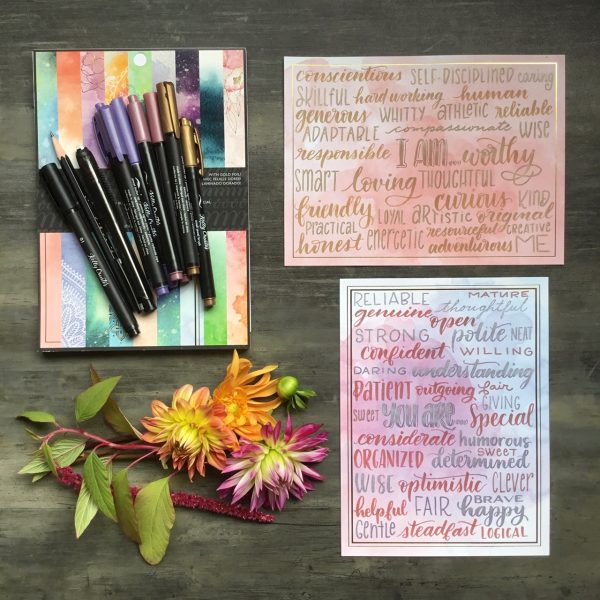 WITH GOLD FOIL!
Kelly Creates
Kelly Creates
Kelly Creates
conscientious SELF-DISCIPLINED caring
SKILLFUL hard working human
generous WHITTY ATHLETIC reliable
ADAPTABLE compassionate WISE
responsible I AM... worthy
SMART loving THOUGHTFUL
friendly curious KIND
LOYAL ARTISTIC original
PRACTICAL resourceful CREATIVE
honest energetic adventurous ME
RELIABLE MATURE
genuine thoughtful
open
STRONG polite NEAT
confident WILLING
DARING understanding
PATIENT outgoing fair
GIVING
SWEET YOU ARE... Special
considerate humorous
SWEET
ORGANIZED determined
WISE optimistic clever
BRAVE
helpful FAIR happy
Gentle steadfast LOGICAL